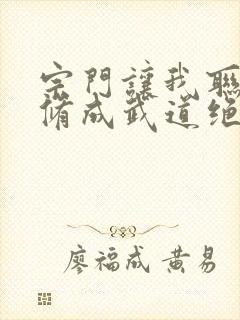 宗門讓我聯
脩成武道絕
廖福成 黄易